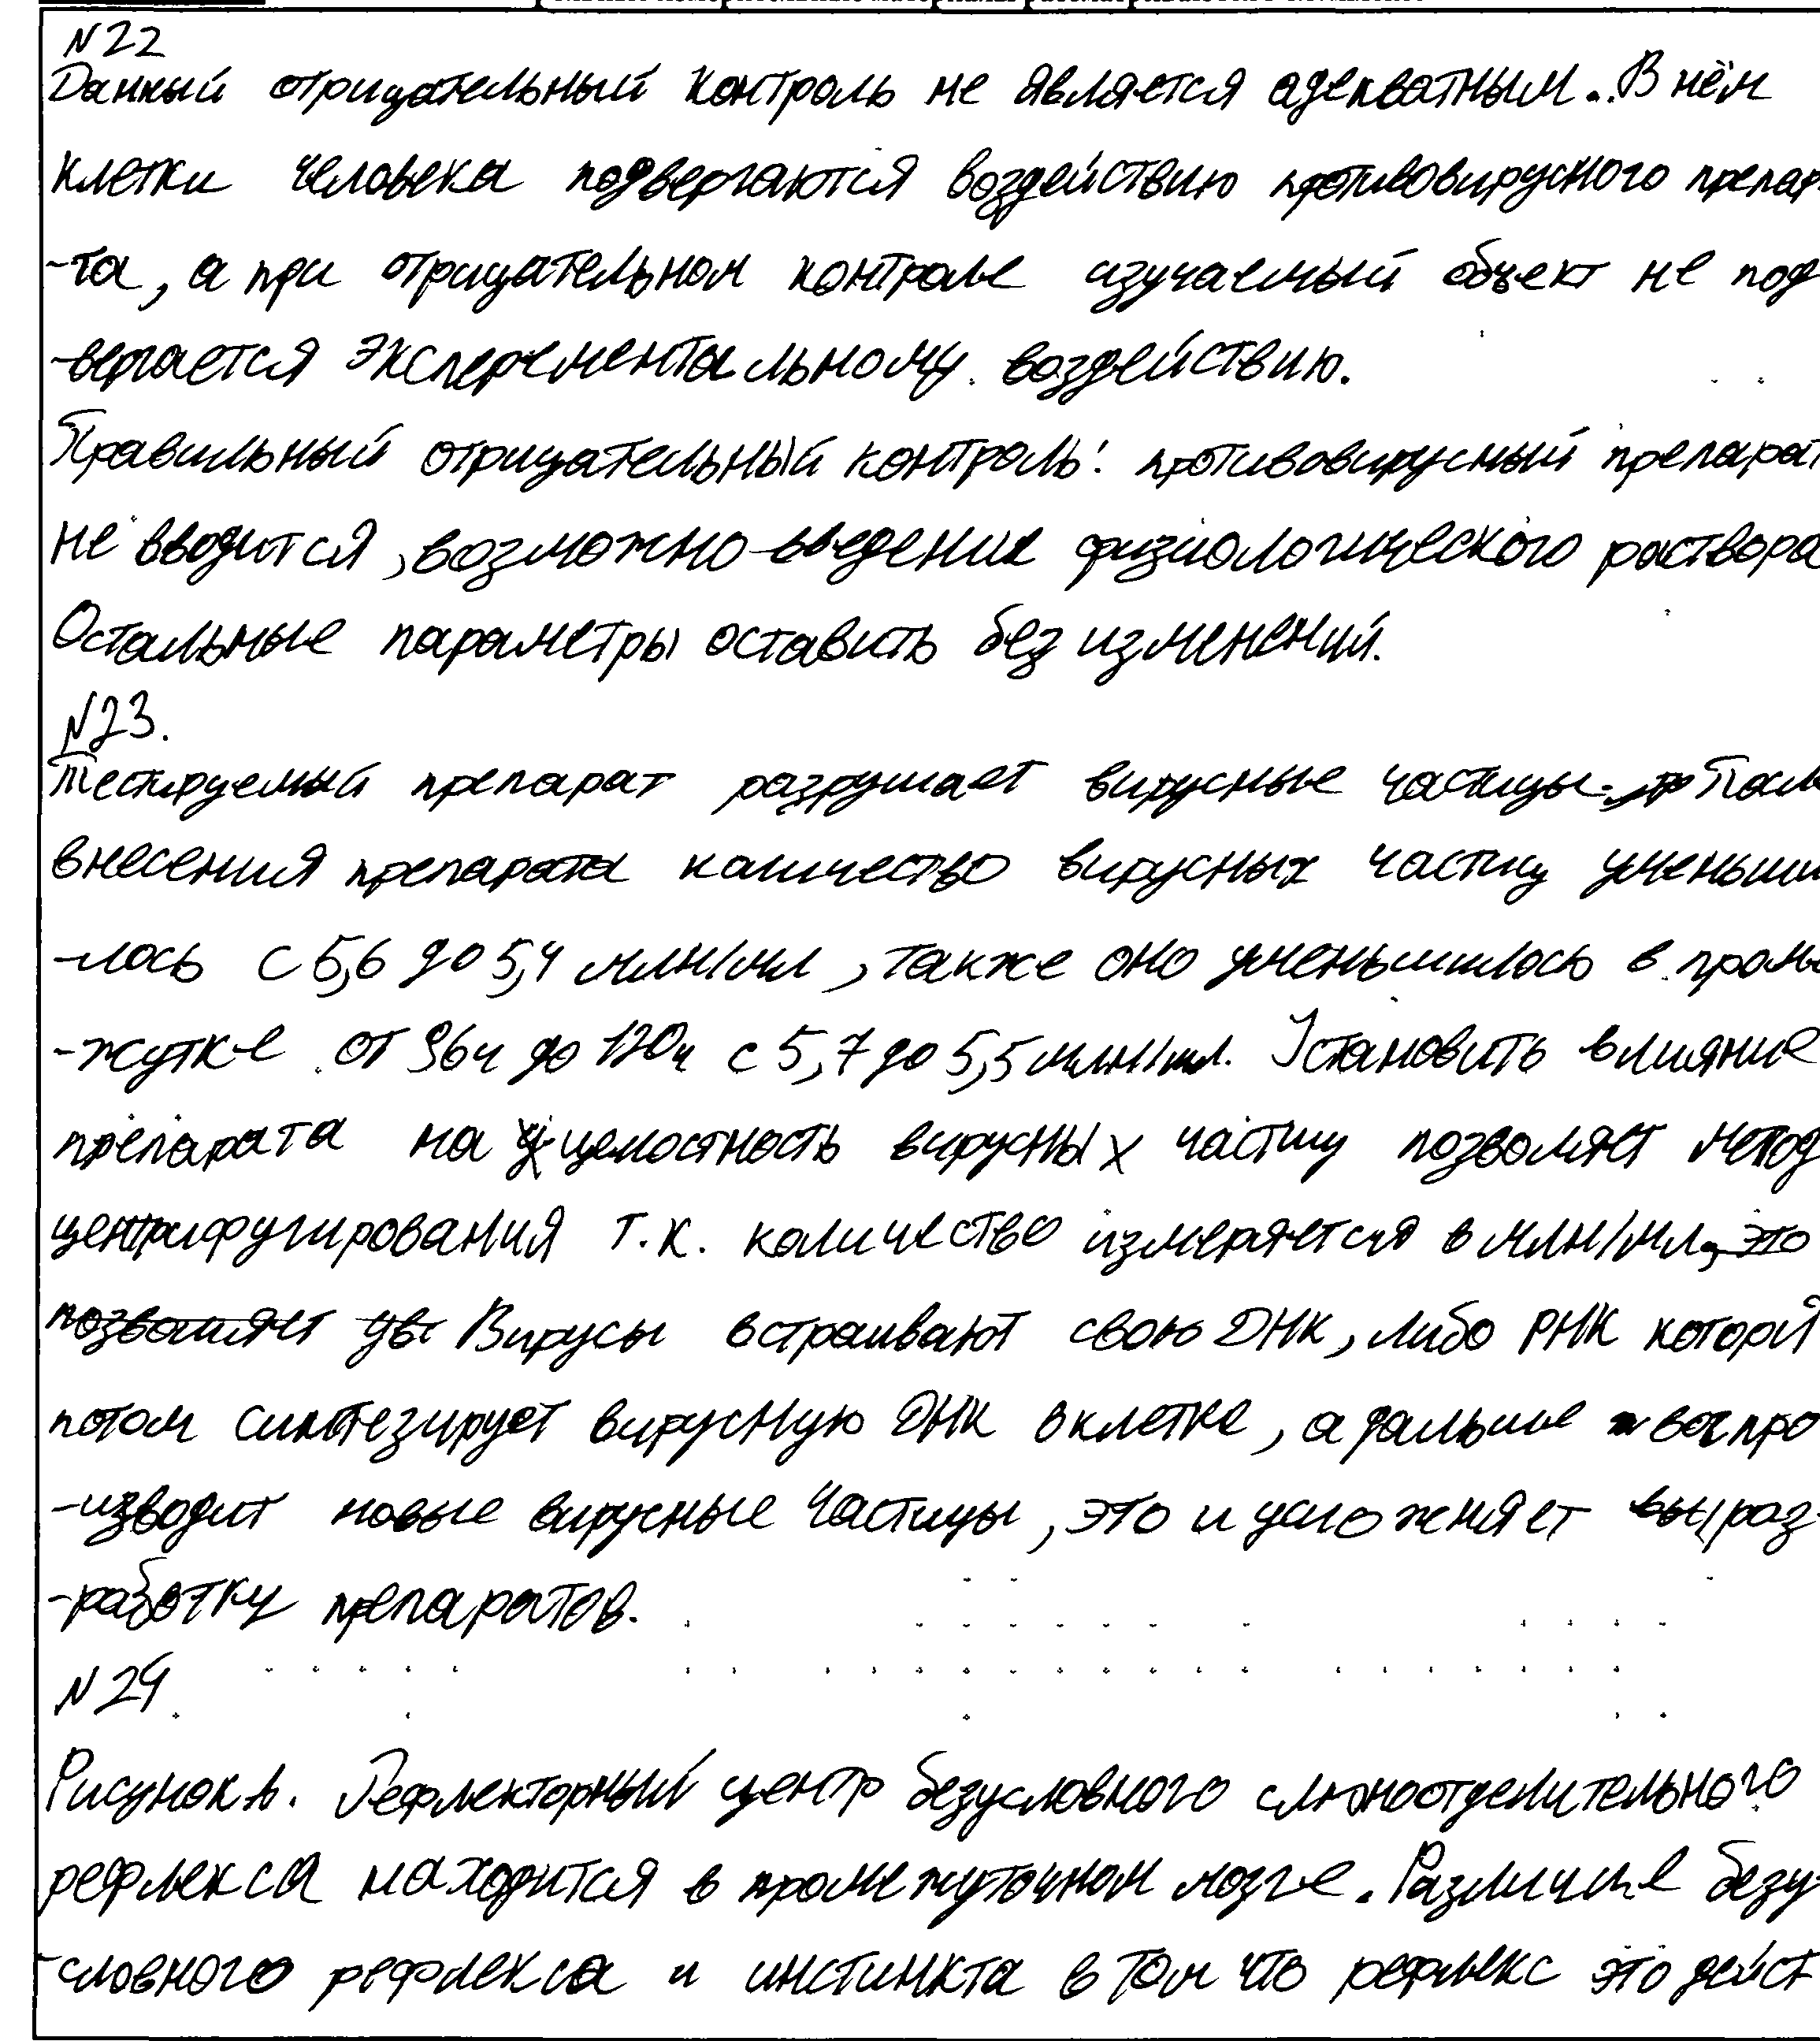 N22
Данный отрицательный контроль не является адекватным. В нём
клетки человека подвергаются воздействию противовирусного препар
-та, а при отрицательном контроле изучаемый объект не под
-вергается эксперементальному воздействию.
Правильный отрицательный контроль: противовирусный препарат
не вводится, возможно введение физиологического раствора
Остальные параметры оставить без изменений.
N23.
Тестируемый препарат разрушает вирусные частицы. Посл
внесения препарата количество вирусных частиц уменьши
-лось с 5,6 до 5,4 млн/мл, также оно уменьшилось в проме
-жутке от 96ч до 120ч с 5,7 до 5,5 млн/мл. Установить влияние
препарата на целостность вирусных частиц позволяет метод
центрифугирования т.к. количество измеряется в млн/мл, это
позволяет Вирусы встраивают свою ДНК, либо РНК которй
потом синтезирует вирусную ДНК в клетке, а дальше воспро
-изводит новые вирусные частицы, это и усложняет вы раз-
-работку препаратов.
N24
Рисунок А. Рефлекторный центр безусловного слюноотделительного
рефлекса находится в промежуточном мозге. Различие безу-
-словного рефлекса и инстинкта в том что рефлекс это дейст